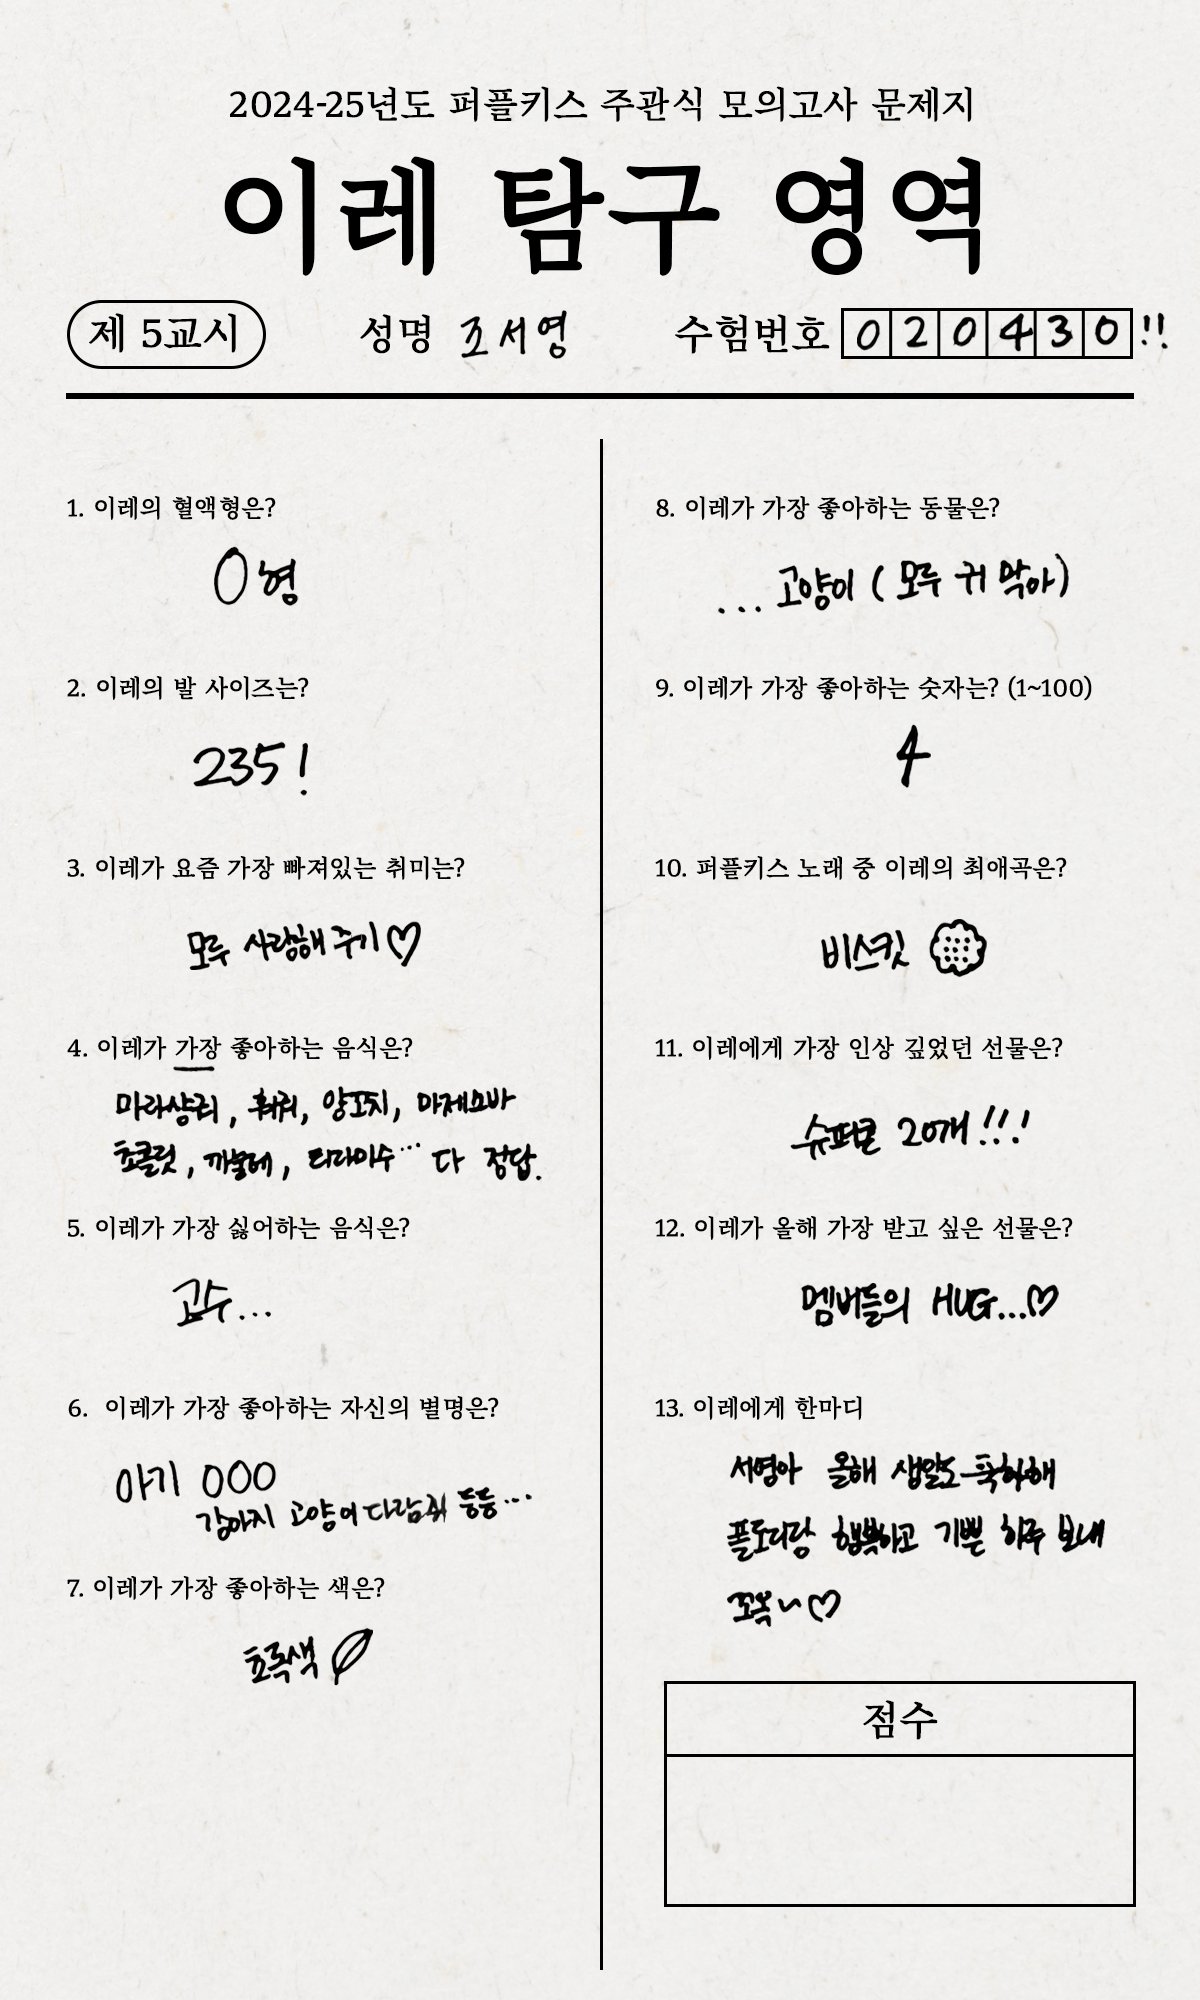 2024-25년도 퍼플키스 주관식 모의고사 문제지
이레 탐구 영역
제 5교시
성명 조서영
수험번호 020430!!
1. 이레의 혈액형은?
O형
2. 이레의 발 사이즈는?
235!
3. 이레가 요즘 가장 빠져있는 취미는?
모두 사랑해 주기♡
4. 이레가 가장 좋아하는 음식은?
마라샹궈, 훠궈, 양꼬치, 마제소바
초콜릿, 까눌레, 티라미수… 다 정답.
5. 이레가 가장 싫어하는 음식은?
고수...
6. 이레가 가장 좋아하는 자신의 별명은?
아기 OOO
강아지 고양이 다람쥐 등등...
7. 이레가 가장 좋아하는 색은?
초록색
8. 이레가 가장 좋아하는 동물은?
... 고양이 (모두 귀 막아)
9. 이레가 가장 좋아하는 숫자는? (1~100)
4
10. 퍼플키스 노래 중 이레의 최애곡은?
비스킷
11. 이레에게 가장 인상 깊었던 선물은?
슈퍼콘 20개!!!
12. 이레가 올해 가장 받고 싶은 선물은?
멤버들의 HUG...♡
13. 이레에게 한마디
서영아 올해 생일도 축하해
플토리랑 행복하고 기쁜 하루 보내
꼬옥~♡
점수